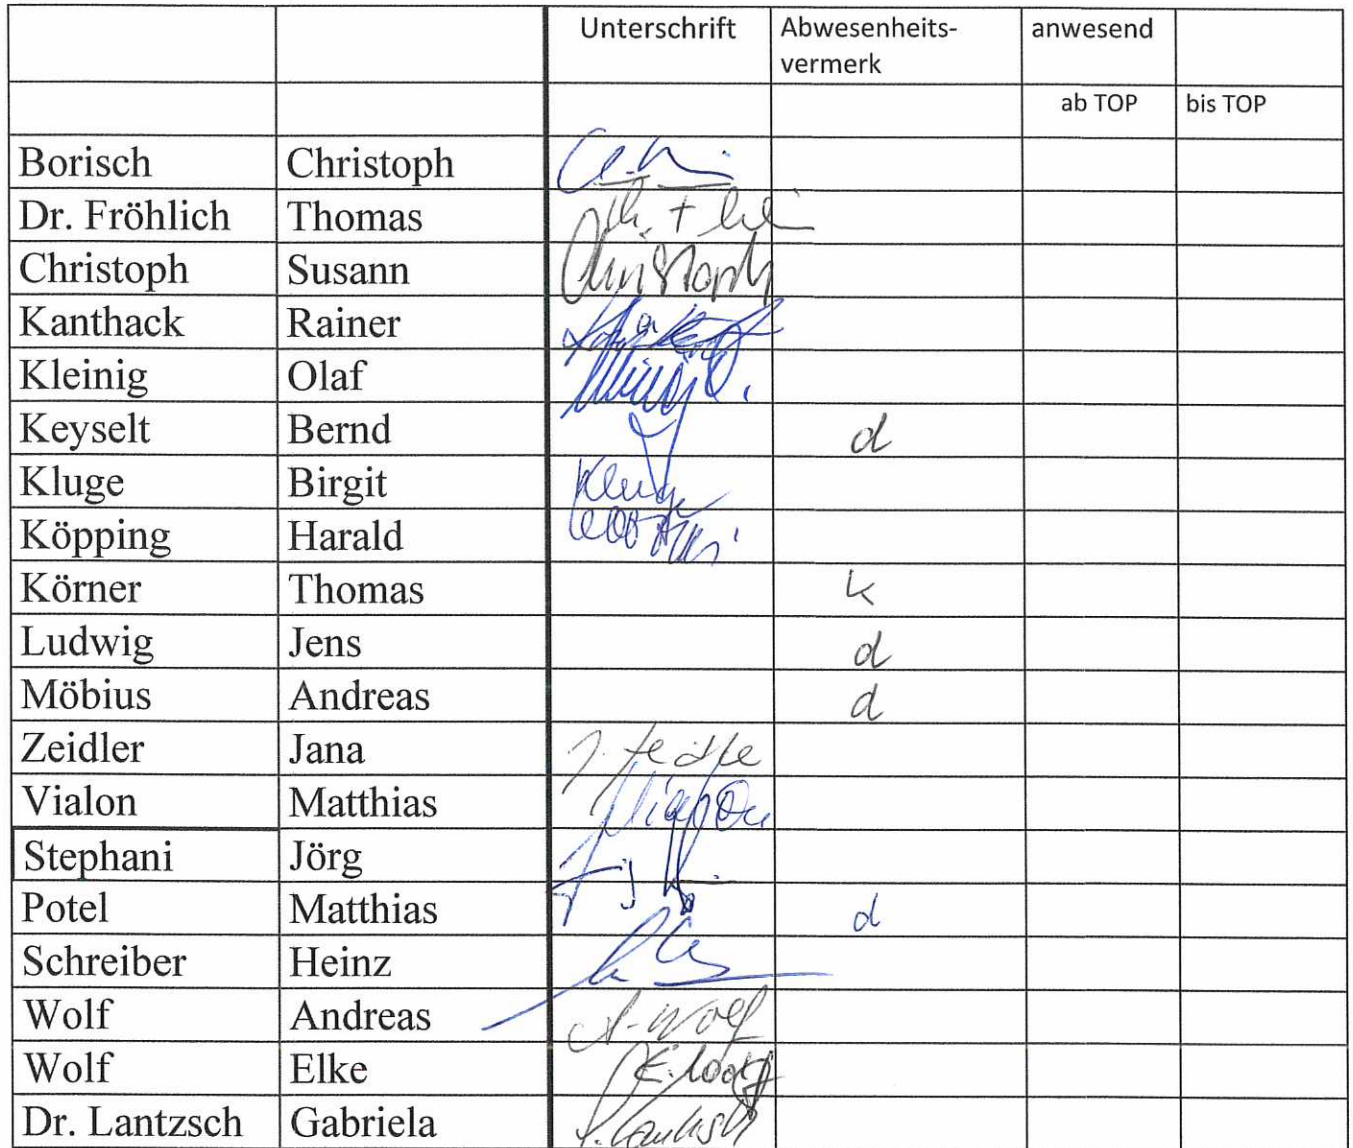 Unterschrift Abwesenheits- anwesend
vermerk
ab TOP bis TOP
Borisch Christoph
Dr. Fröhlich Thomas
Christoph Susann Christoph
Kanthack Rainer
Kleinig Olaf
Keyselt Bernd d
Kluge Birgit Kluge
Köpping Harald
Körner Thomas k
Ludwig Jens d
Möbius Andreas d
Zeidler Jana J. Zeidle
Vialon Matthias Vialon
Stephani Jörg
Potel Matthias d
Schreiber Heinz
Wolf Andreas A. Wolf
Wolf Elke E. Wolf
Dr. Lantzsch Gabriela